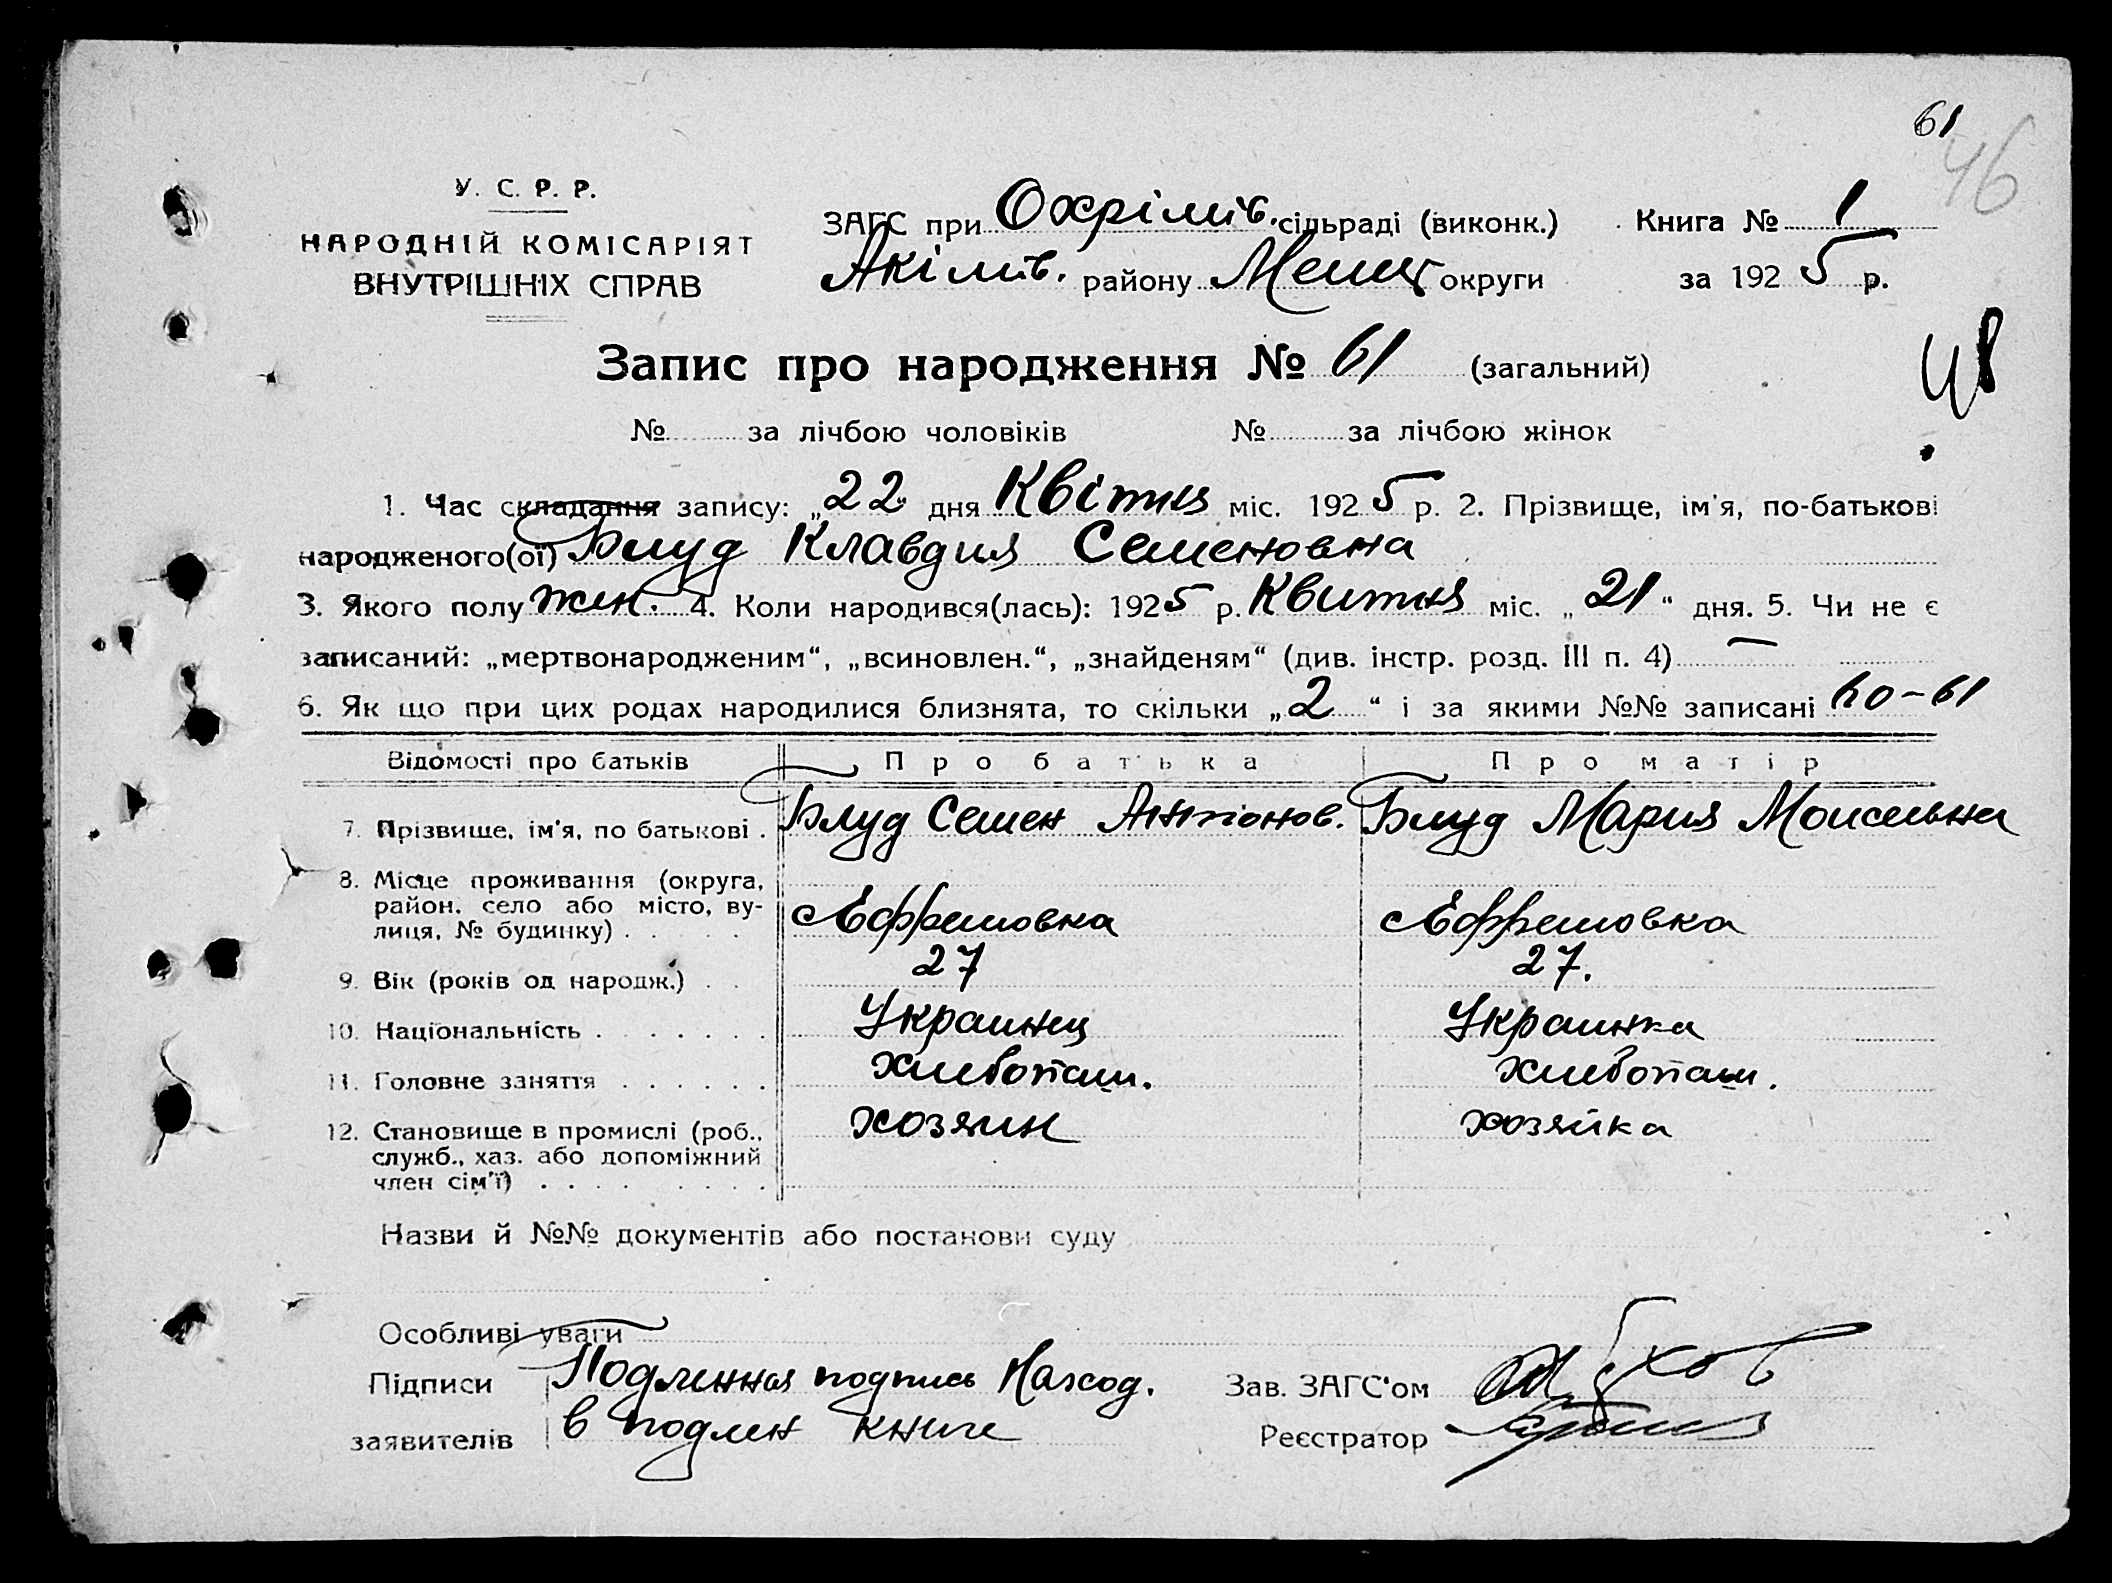 61
46
У. С. Р. Р.
НАРОДНІЙ КОМІСАРІЯТ
ВНУТРІШНІХ СПРАВ
ЗАГС при Охрімів. сільраді (виконк.) Книга № 1
Акімів. району Мелит округи за 1925 р.
48
Запис про народження № 61 (загальний)
№ за лічбою чоловіків № за лічбою жінок
1. Час складання запису: „22“ дня Квітня міс. 1925 р. 2. Прізвище, ім'я, по-батькові
народженого(ої) Блуд Клавдия Семеновна
3. Якого полу жен. 4. Коли народився(лась): 1925 р. Квитня міс. „21“ дня. 5. Чи не є
записаний: „мертвонародженим“, „всиновлен.“, „знайденям“ (див. інстр. розд. III п. 4) —
6. Як що при цих родах народилися близнята, то скільки „2“ і за якими №№ записані 60-61
Відомості про батьків Про батька Про матір
7. Прізвище, ім'я, по батькові . Блуд Семен Антонов. Блуд Мария Моисеевна
8. Місце проживання (округа,
район, село або місто, ву-
лиця, № будинку) . . . . Ефремовка Ефремовка
9. Вік (років од народж.) . . 27 27.
10. Національність . . . . . . . Украинец Украинка
11. Головне заняття . . . . . . Хлебопаш. хлебопаш.
12. Становище в промислі (роб.,
служб., хаз. або допоміжний
член сім'ї) . . . . . . . . хозяин хозяйка
Назви й №№ документів або постанови суду
Особливі уваги
Підписи Подлинная подпись Наход. Зав. ЗАГС'ом
заявителів в подлен книге Реєстратор